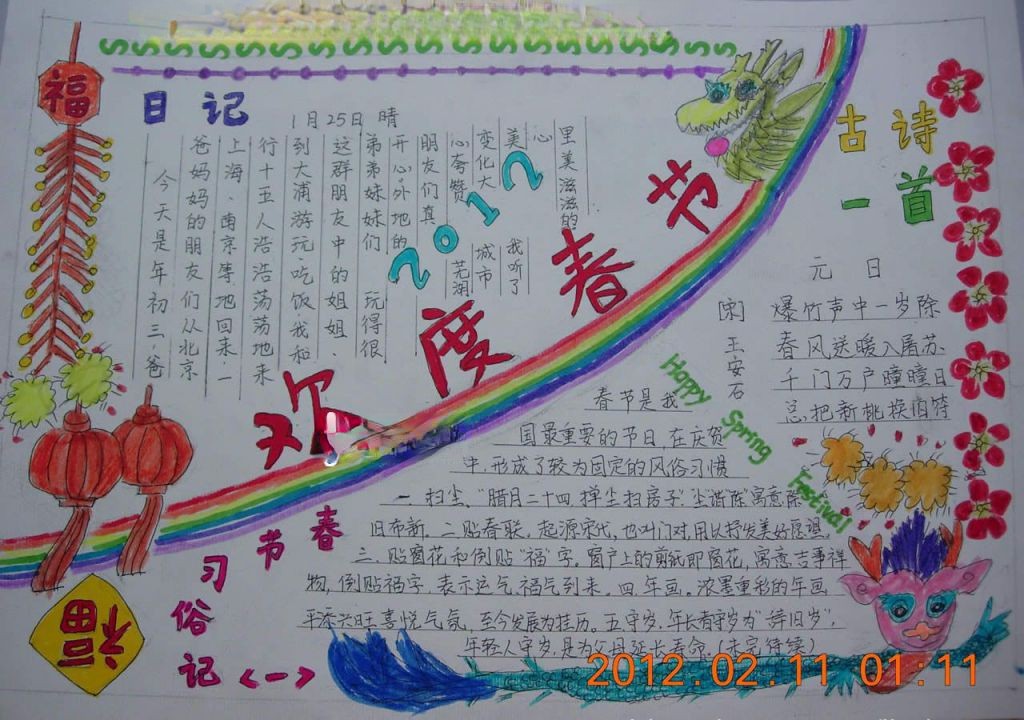 福
日记
1月25日 晴
今天是年初三,爸
爸妈妈的朋友们从北京
上海、南京等地回来,一
行十五人浩浩荡荡地来
到大浦游玩、吃饭,我和
这群朋友中的姐姐、
弟弟妹妹们 玩得很
开心。外地的
朋友们真
心夸赞 芜湖
变化大 城市
美, 我听了
心
里美滋滋的.
2012
欢度春节
古诗
一首
元 日
[宋] 王安石
爆竹声中一岁除
春风送暖入屠苏
千门万户曈曈日
总把新桃换旧符
Happy Spring Festival
春节习俗记<一>
春节是我
国最重要的节日,在庆贺
中,形成了较为固定的风俗习惯
一.扫尘,"腊月二十四,掸尘扫房子"尘谐"陈"寓意除
旧布新。二.贴春联,起源宋代,也叫门对,用以抒发美好愿望,
三.贴窗花和倒贴"福"字。窗户上的剪纸即窗花,寓意吉事祥
物,倒贴福字,表示运气,福气到来。四.年画。浓墨重彩的年画
平添兴旺喜悦气氛,至今发展为挂历。五.守岁,年长者守岁为"辞旧岁",
年轻人守岁,是为父母延长寿命.(未完待续)
福
2012.02.11 01:11